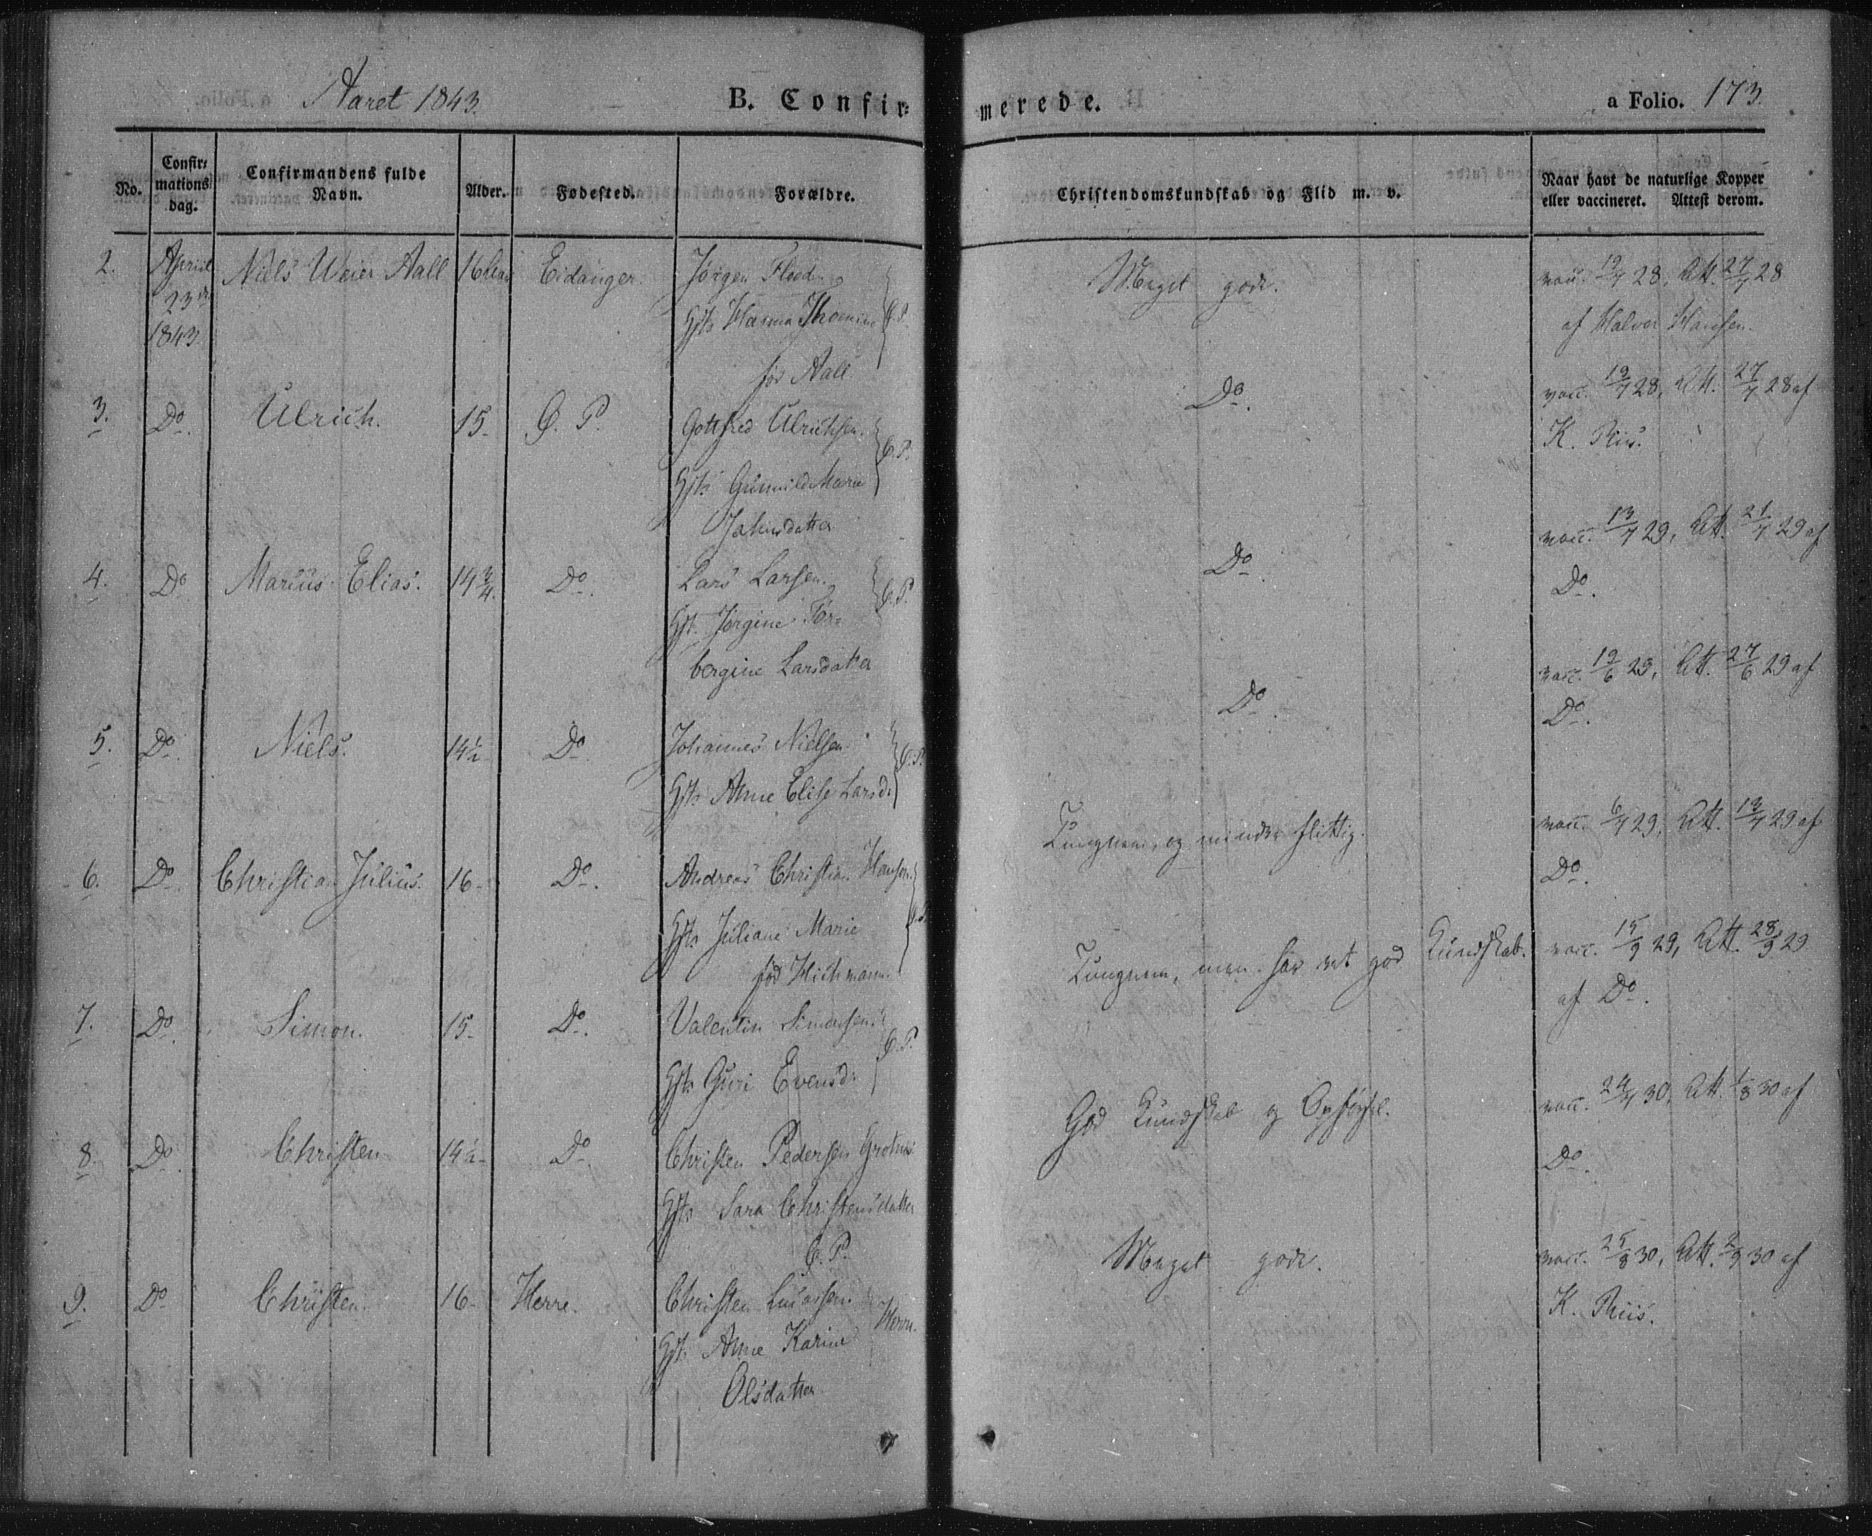 Aaret 1843.
B. Confirmerede.
a Folio. 173.
No.
Confirmations dag.
Confirmandens fulde Navn.
Alder.
Fødested.
Forældre.
Christendomskundskab og Flid m. v.
Naar havt de naturlige Kopper eller vaccineret. Attest derom.
2. April 23de 1843 Niels Weier Aall 16 Eidanger. Jørgen Flood
Hst: Thomine
fød Aall
Meget god.
vacc. 19/7 28, Att. 27/7 28
af Halvor Hansen.
3. Do. Ulrich. 15- Ø. P. Gottfred Ulrichsen. Ø.P.
Hst: Gunnild Maria
Jahnsdatter
Do.
vacc. 19/7 28, Att. 27/7 28 af
K. Riis.
4. Do Marius Elias. 14 3/4. Do. Lars Larsen. Ø.P.
Hst: Jørgine Tor-
bergine Larsdatter
Do.
vacc. 13/7 29, Att. 21/7 29 af
Do.
5. Do. Niels. 14½ Do. Johannes Nielsen Ø.P.
Hst: Anne Elise Larsd:
Do.
vacc. 19/6 29, Att. 27/6 29 af
Do.
6. Do Christian Julius. 16- Do. Andreas Christian Hansen
Hst: Juliane Marie
fød Hichmann
Tungnem, og mindre flittig.
vacc. 6/7 29, Att. 13/7 29 af
Do.
7. Do. Simon. 15- Do. Valentin Simonsen. Ø.P.
Hst: Guri Evensdr
Tungnem, men har ret god Kundskab.
vacc. 15/9 29, Att. 28/9 29
af Do.
8. Do. Christen 14½- Do Christen Pedersen
Hst: Sara Christensdatter
Ø.P.
God Kundskab og Opførsel.
vacc. 24/7 30, Att. 1/8 30 af
Do.
9. Do Christen. 16- Herre. Christen
Hst: Anne Karine
Olsdatter
Meget god.
vacc. 25/8 30, Att. 2/9 30 af
K. Riis.